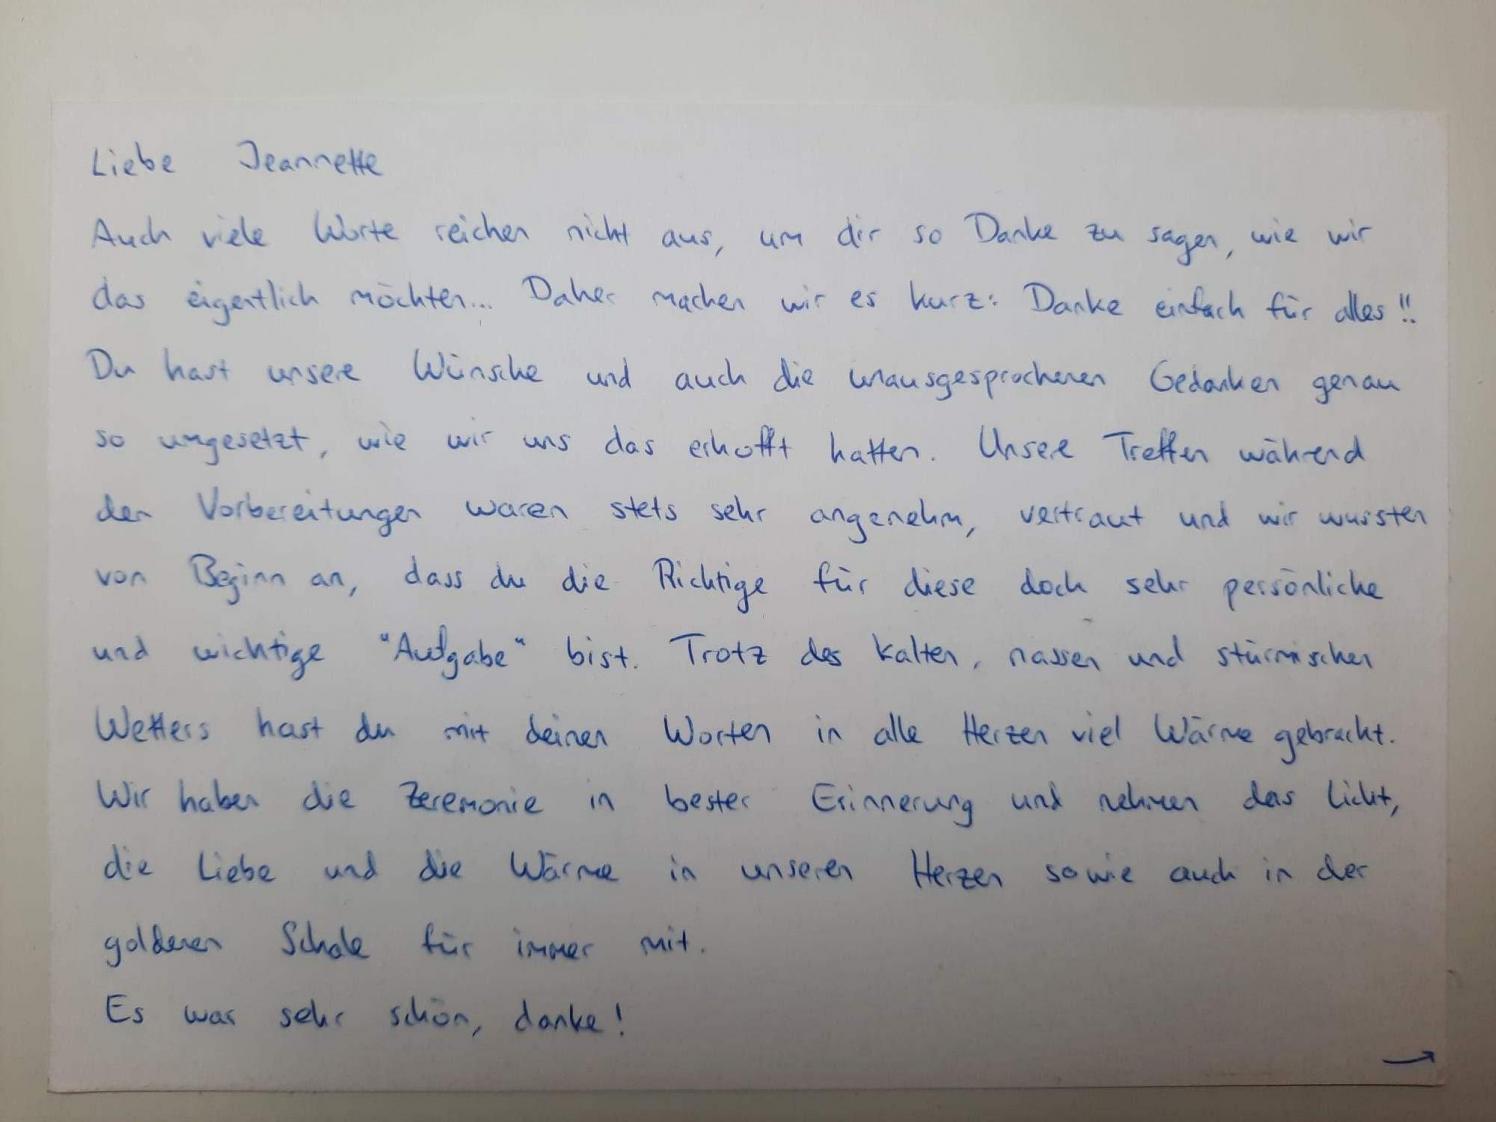 Liebe Jeannette
Auch viele Worte reichen nicht aus, um dir so Danke zu sagen, wie wir
das eigentlich möchten... Daher machen wir es kurz: Danke einfach für alles!!
Du hast unsere Wünsche und auch die unausgesprochenen Gedanken genau
so umgesetzt, wie wir uns das erhofft hatten. Unsere Treffen während
den Vorbereitungen waren stets sehr angenehm, vertraut und wir wussten
von Beginn an, dass du die Richtige für diese doch sehr persönliche
und wichtige "Aufgabe" bist. Trotz des kalten, nassen und stürmischen
Wetters hast du mit deinen Worten in alle Herzen viel Wärme gebracht.
Wir haben die Zeremonie in bester Erinnerung und nehmen das Licht,
die Liebe und die Wärme in unseren Herzen sowie auch in der
goldenen Schale für immer mit.
Es war sehr schön, danke!
→